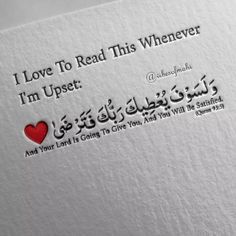 I Love To Read This Whenever
I'm Upset:
وَلَسَوْفَ يُعْطِيكَ رَبُّكَ فَتَرْضَىٰ
And Your Lord Is Going To Give You, And You Will Be Satisfied.
(Quran 93:5)